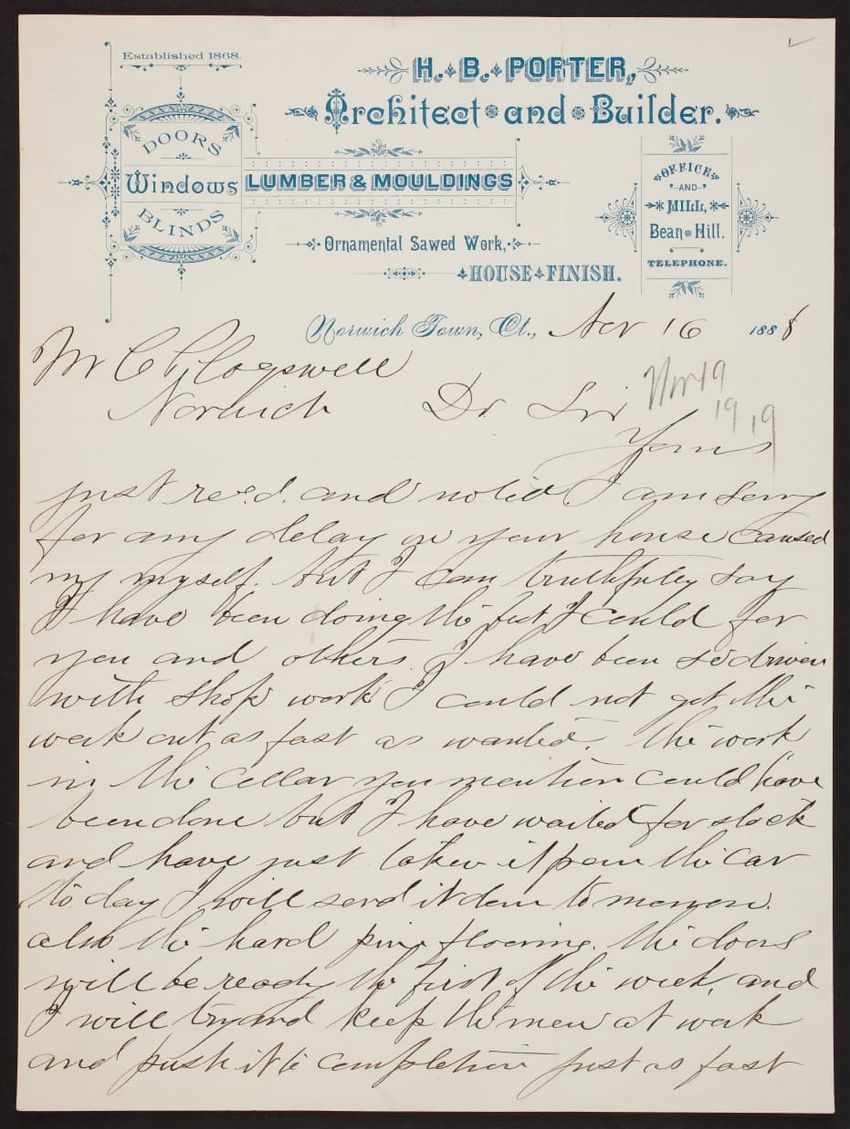 Established 1868.
H. B. PORTER,
Architect and Builder.
DOORS
Windows
BLINDS
LUMBER & MOULDINGS
Ornamental Sawed Work,
HOUSE FINISH.
OFFICE
AND
MILL,
Bean Hill.
TELEPHONE.
Norwich Town, Ct., Nov 16 1888
Mr C P Cogswell
Norwich Dr Sir
Nov 19
19 19
Yours
just rec'd. and noted I am sorry
for any delay on your house caused
my myself. but I can truthfuley say
I have been doing the best I could for
you and others. I have been so driven
with shop work I could not get the
work out as fast as wanted. The work
in the cellar you mention could have
been done but I have waited for stock
and have just taken it from the car
to day I will send it down to morrow.
also the hard pine flooring. The doors
will be ready the first of the week, and
I will try and keep the men at work
and push it to completion just as fast